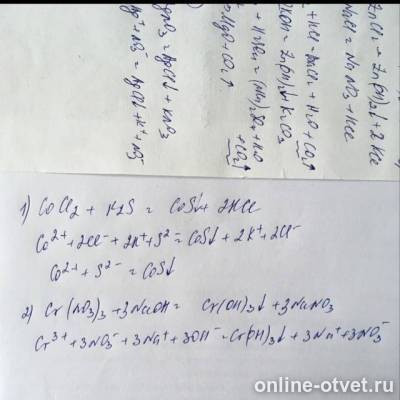 ZnCl₂ + Zn(OH)₂↓ + 2KCl
NaCl = NaNO₃ + HCl
+ HCl = + H₂O + CO₂↑
KOH = Zn(OH)₂↓ + K₂CO₃
+ CO₂↑
MgO + CO₂↑
AgNO₃ = AgCl↓ + KNO₃
Ag⁺ + NO₃⁻ = AgCl↓ + K⁺ + NO₃⁻
1) CoCl₂ + K₂S = CoS↓ + 2KCl
Co²⁺ + 2Cl⁻ + 2K⁺ + S²⁻ = CoS↓ + 2K⁺ + 2Cl⁻
Co²⁺ + S²⁻ = CoS↓
2) Cr(NO₃)₃ + 3NaOH = Cr(OH)₃↓ + 3NaNO₃
Cr³⁺ + 3NO₃⁻ + 3Na⁺ + 3OH⁻ = Cr(OH)₃↓ + 3Na⁺ + 3NO₃⁻
online-otvet.ru